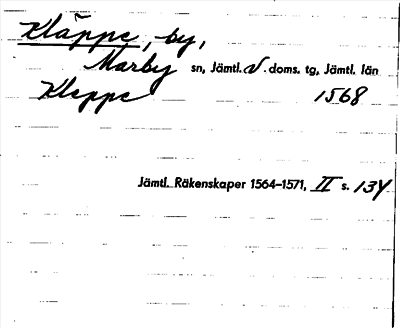 Kläppe, by,
Marby sn, Jämtl. V. doms. tg, Jämtl. län
Kleppe 1568
Jämtl. Räkenskaper 1564–1571, II s. 134